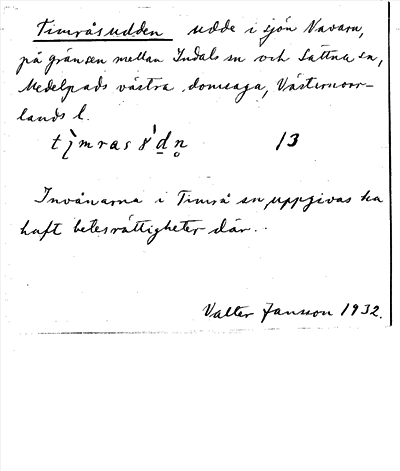 Timråsudden udde i sjön Navarn,
på gränsen mellan Indals sn och Sättna sn,
Medelpads västra domsaga, Västernorr-
lands l.
13
Invånarna i Timrå sn uppgivas ha
haft betesrättigheter där.
Valter Jansson 1932.